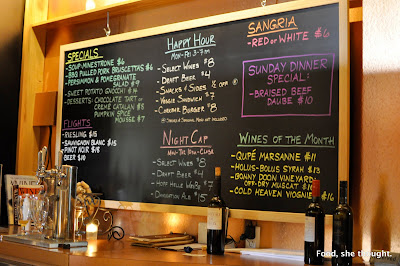 SPECIALS
-SOUP-MINESTRONE $6
-BBQ PULLED PORK BRUSCETTAS $6
-PERSIMMON & POMEGRANATE
SALAD $9
-SWEET POTATO GNOCCHI $14
-DESSERTS: CHOCOLATE TART or
CREME CATALAN $8
PUMPKIN SPICE
MOUSSE $7
FLIGHTS
RIESLING $15
SAUVIGNON BLANC $15
PINOT NOIR $18
BEER $10
HAPPY HOUR
MON-FRI 3-7pm
- SELECT WINES $8
- DRAFT BEER $4
- SNACKS & SIDES ½ OFF
- VEGGIE SANDWICH $7
- CHROME BURGER $8
NIGHT CAP
- SELECT WINES $8
- DRAFT BEER $4
- HOPF HELLE
ALE $15
SANGRIA
- RED or WHITE $6
SUNDAY DINNER
SPECIAL:
- BRAISED BEEF
DAUBE $10
WINES OF THE MONTH
- QUPÉ MARSANNE $11
- HOLUS-BOLUS SYRAH $13
- BONNY DOON VINEYARD
OFF-DRY MUSCAT $10
- COLD HEAVEN VIOGNIER $16
Food, she thought.